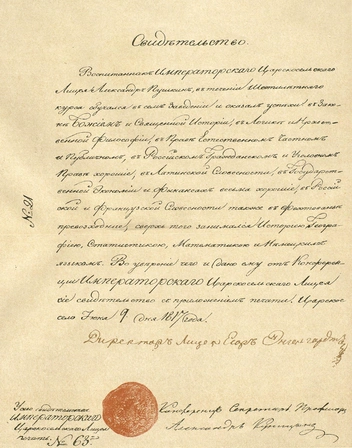 Свидѣтельство.
Воспитанникъ ИМПЕРАТОРСКАГО Царскосельскаго
Лицея Александръ Пушкинъ, въ теченіи шестилѣтняго
курса обучался въ семъ Заведеніи и оказалъ успѣхи: въ Зако-
нѣ Божіемъ и Священной Исторіи, въ Логикѣ и
Философіи, въ Правѣ Естественномъ, Частномъ
и Публичномъ, въ Россійскомъ Гражданскомъ и Уголовномъ
Правѣ хорошіе; въ Латинской Словесности, въ Государст-
венной Экономіи и Финансахъ весьма хорошіе; въ Россій-
ской и Французской Словесности также въ Фехтованіи
превосходные; сверхъ того занимался Исторіею, Геогра-
фіею, Статистикою, Математикою и Нѣмецкимъ
языкомъ. Во увѣреніе чего и дано ему отъ Конферен-
ціи ИМПЕРАТОРСКАГО Царскосельскаго Лицея
сіе свидѣтельство съ приложеніемъ печати. Царское
село Іюня 9 дня 1817 года.
№ 21
Директоръ Лицея Егоръ Энгельгардтъ
Конференцъ Секретарь Профессоръ
Александръ Куницынъ
ИМПЕРАТОРСКАГО
Царскосельскаго Лицея
печать.
№ 63